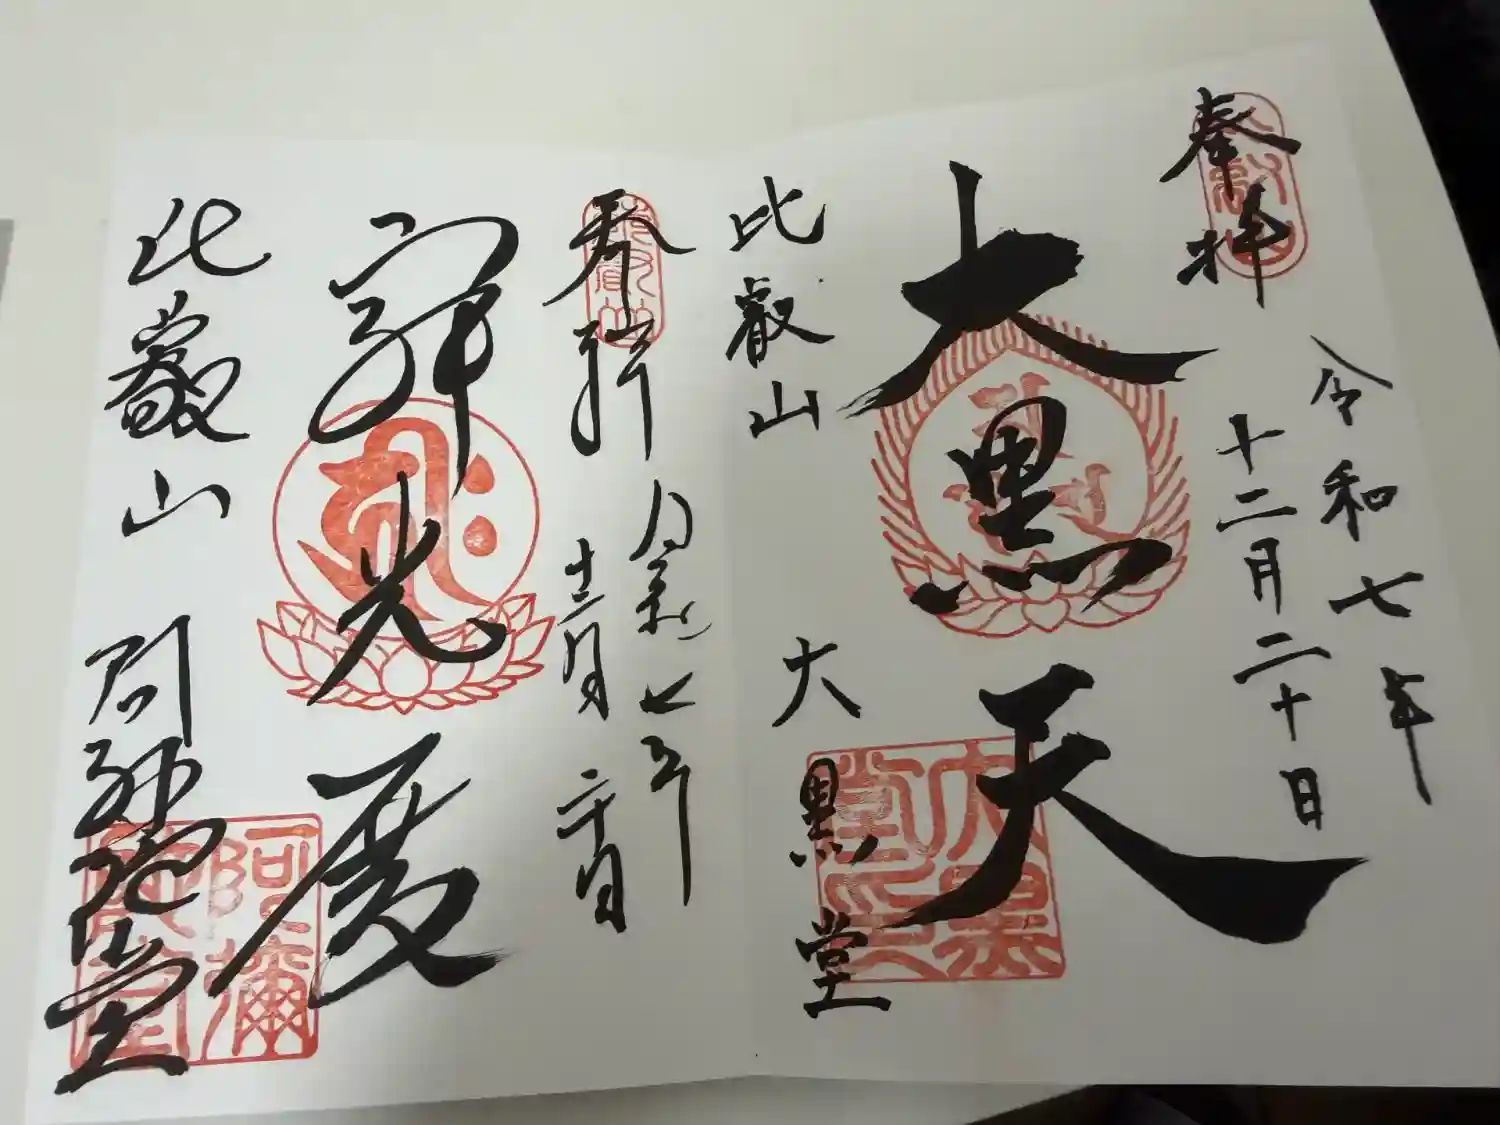 奉拝
令和七年
十二月二十日
大黒天
比叡山 大黒堂
奉拝
令和七年
十二月二十日
比叡山 阿弥陀堂